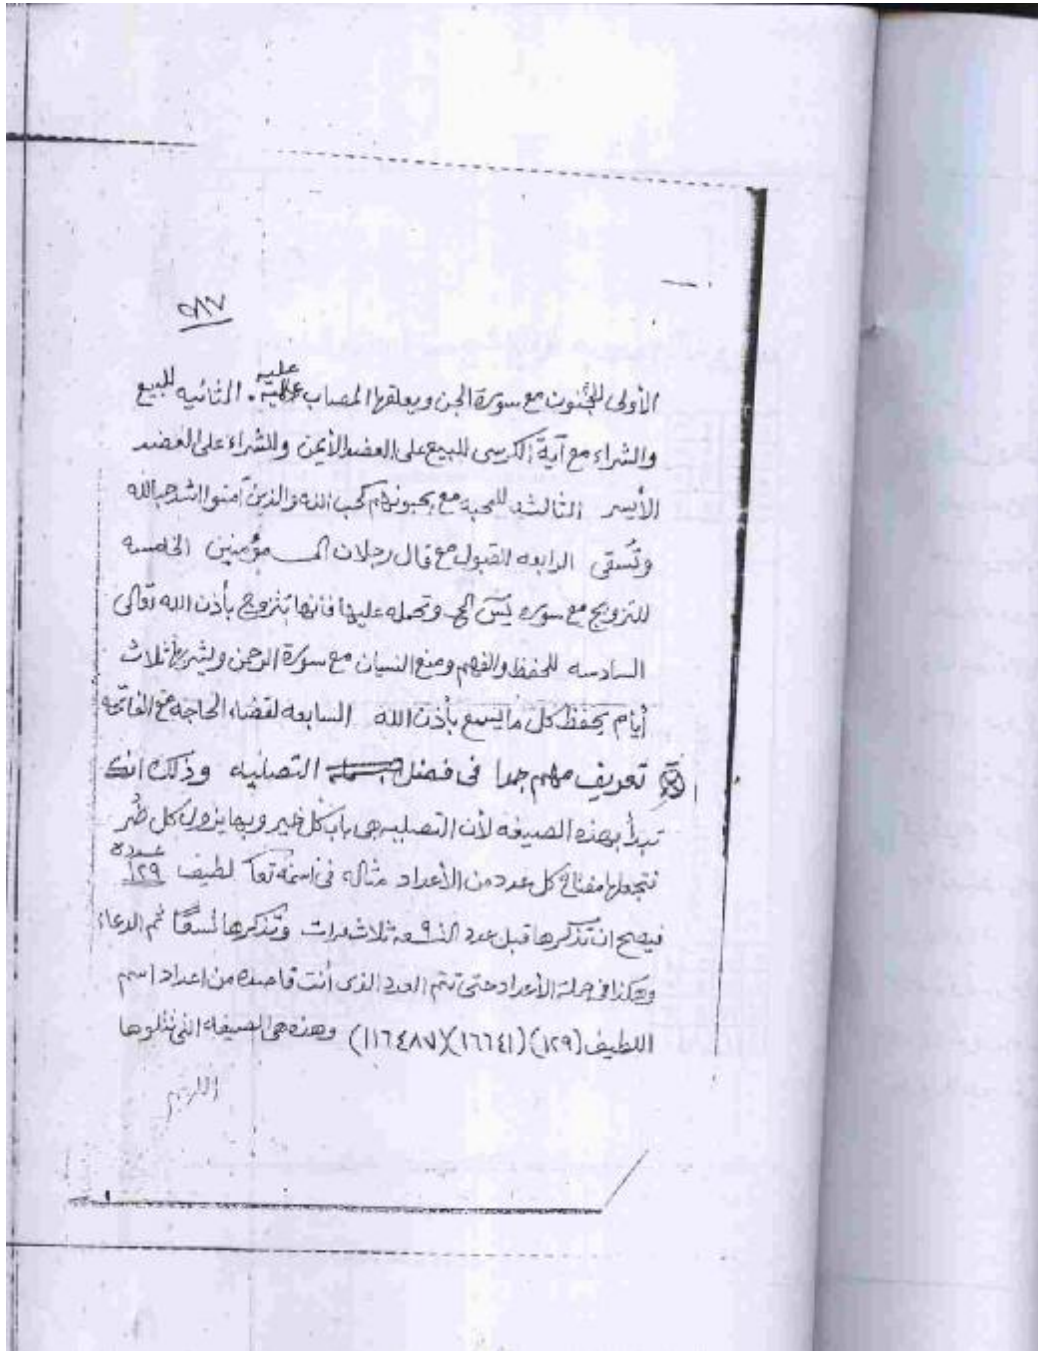 ٥١٧
الأولى للجنون مع سورة الجن ويعلقها المصاب عليه. الثانيه للبيع
والشراء مع آية الكرسى للبيع على العضد الأيمن وللشراء على العضد
الأيسر الثالثه للمحبه مع يحبونهم كحب الله والذين آمنوا اشد حبا لله
وتُسقى الرابعه للقبول مع قال رجلان الى مؤمنين الخامسه
للتزويج مع سوره يس الى وتحمله عليها فانها تتزوج بأذن الله تعالى
السادسه للحفظ والفهم ومنع النسيان مع سورة الرحمن ويشربها ثلاث
أيام يحفظ كل ما يسمع بأذن الله السابعه لقضاء الحاجه مع الفاتحه
تعريف مهم جدا فى فضل التصليه وذلك انك
تبدأ بهذه الصيغه لأن التصليه هى باب كل خير وبها يزول كل ضُر
فتجعلها مفتاح كل عدد من الأعداد مثاله فى اسمه تعا لطيف عدده ١٢٩
فيصح ان تذكرها قبل عدد التسعه ٩ ثلاث مرات وتذكرها تسعًا ثم الدعاء
وهكذا فى جملة الأعداد حتى تتم العدد الذى أنت قاصده من اعداد اسم
اللطيف (١٢٩) (١٦٦٤١) (١١٦٤٨٧) وهذه هى الصيغه التى تتلوها
اللهم